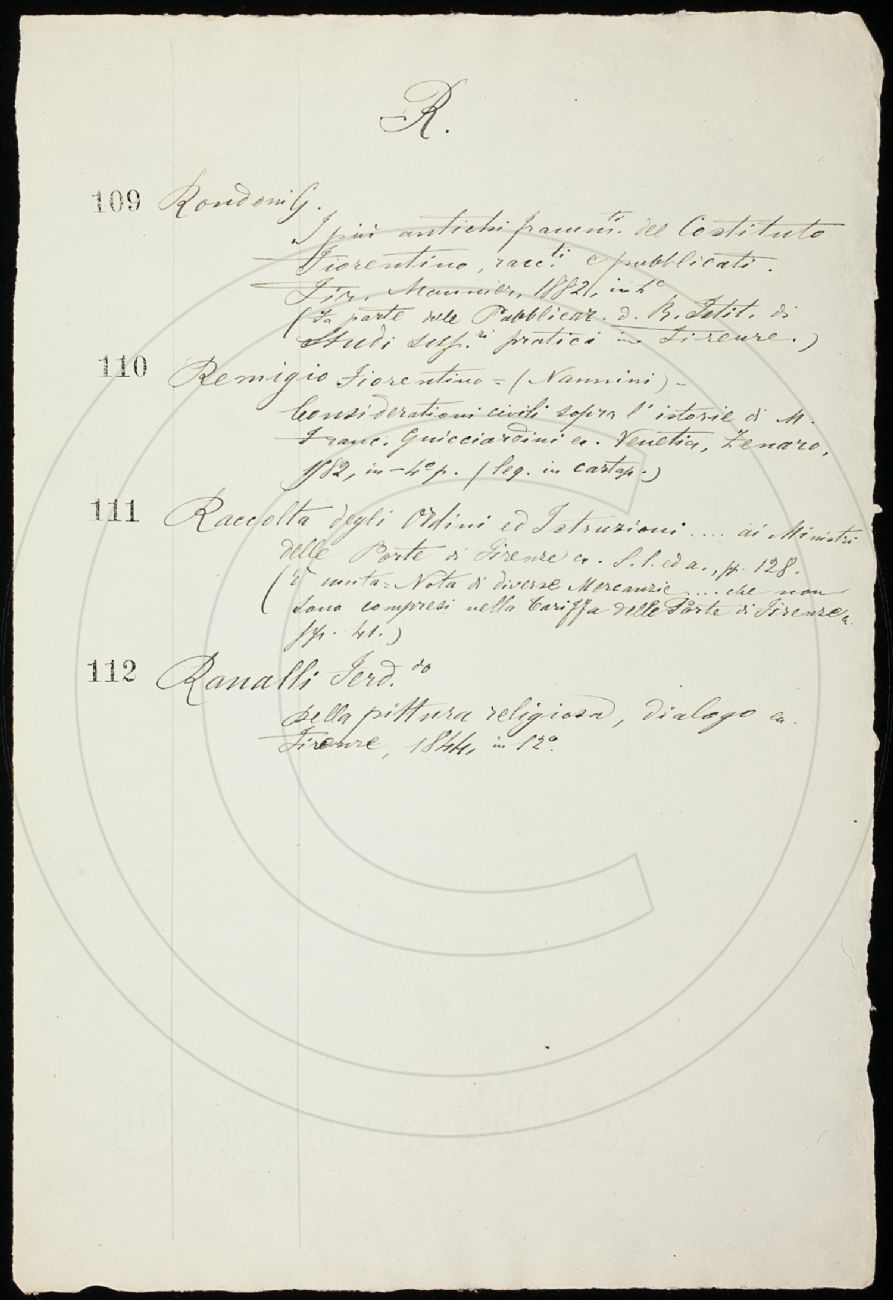 R.
109 Rondoni G.
I più antichi framm.ti del Costituto
Fiorentino, racc.ti e pubblicati.
Fir. Monnier, 1882, in 4°
(Fa parte delle Pubblicaz. d. R. Istit. di
Studi sup.ri pratici in Firenze.)
110 Remigio Fiorentino = (Nannini) -
Considerationi civili sopra l' istorie di M.
Franc. Guicciardini ec. Venetia, Zenaro,
1582, in - 4° p. (leg. in cartap.)
111 Raccolta degli Ordini ed Istruzioni .... ai Ministri
delle Porte di Firenze ec. S. l. ed a., pp. 128.
(È unita = Nota di diverse Mercanzie .... che non
sono compresi nella tariffa delle Porte di Firenze
pp. 41.)
112 Ranalli Ferd.do
Della pittura religiosa, dialogo ec.
Firenze, 1844, in 12°.